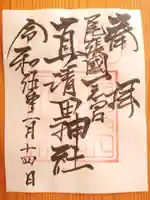 奉拝
尾張國一之宮
真清田神社
令和 年 月十四日